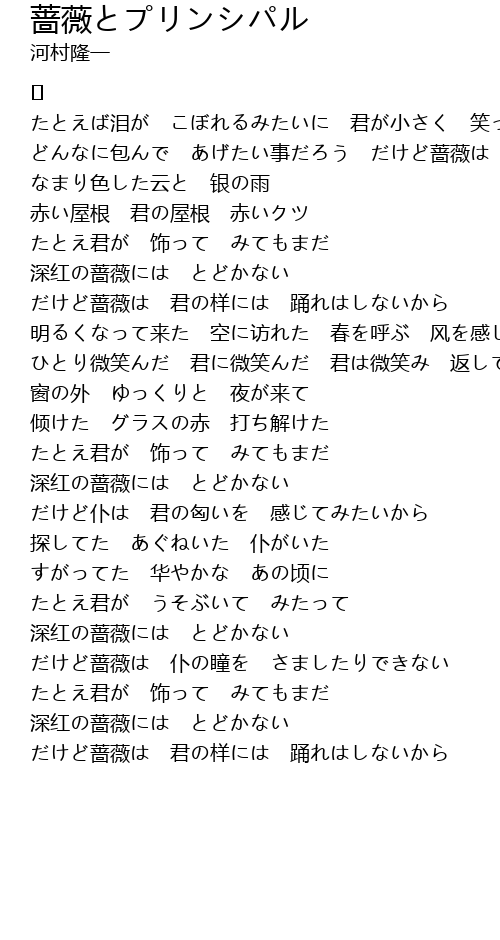 蔷薇とプリンシパル
河村隆一
たとえば泪が　こぼれるみたいに　君が小さく　笑っ
どんなに包んで　あげたい事だろう　だけど蔷薇は
なまり色した云と　银の雨
赤い屋根　君の屋根　赤いクツ
たとえ君が　饰って　みてもまだ
深红の蔷薇には　とどかない
だけど蔷薇は　君の样には　踊れはしないから
明るくなって来た　空に访れた　春を呼ぶ　风を感じ
ひとり微笑んだ　君に微笑んだ　君は微笑み　返して
窗の外　ゆっくりと　夜が来て
倾けた　グラスの赤　打ち解けた
たとえ君が　饰って　みてもまだ
深红の蔷薇には　とどかない
だけど仆は　君の匈いを　感じてみたいから
探してた　あぐねいた　仆がいた
すがってた　华やかな　あの顷に
たとえ君が　うそぶいて　みたって
深红の蔷薇には　とどかない
だけど蔷薇は　仆の瞳を　さましたりできない
たとえ君が　饰って　みてもまだ
深红の蔷薇には　とどかない
だけど蔷薇は　君の样には　踊れはしないから